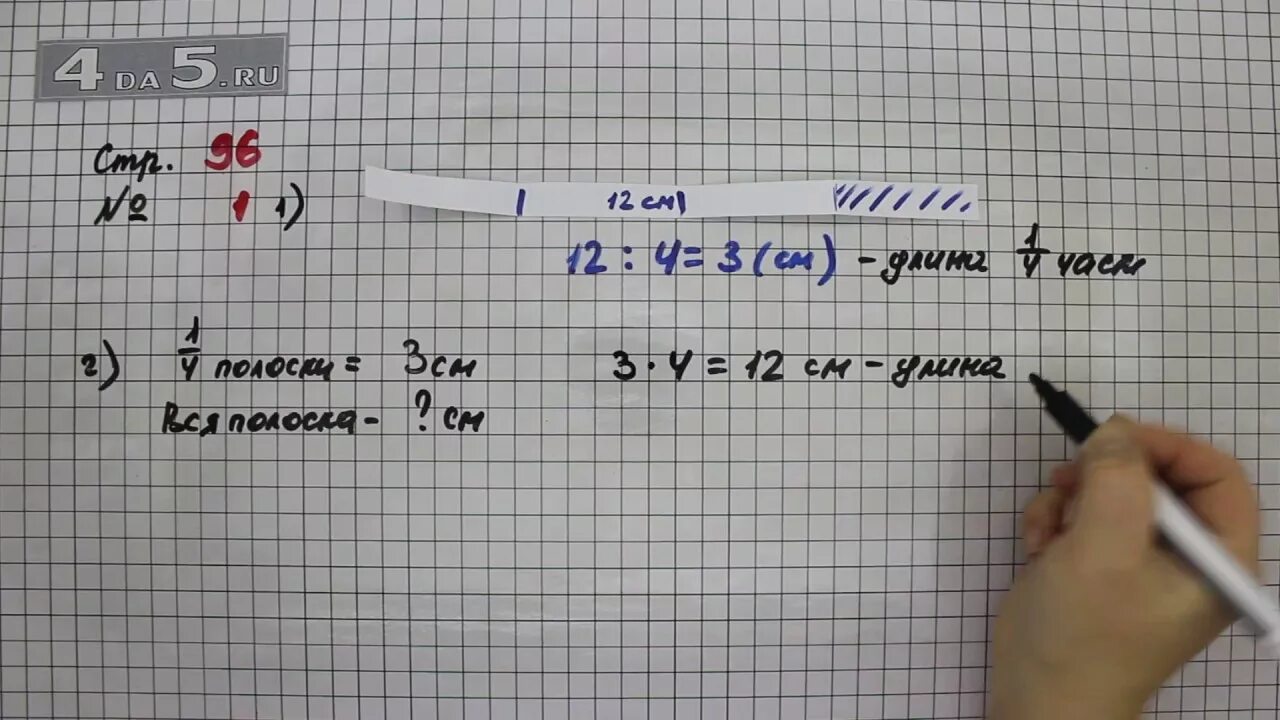 4DA5.RU
Стр. 96
№ 1 1)
12 см
12 : 4 = 3 (см) - длина 1/4 части
2) 1/4 полоски = 3 см
Вся полоска - ? см
3 · 4 = 12 см - длина